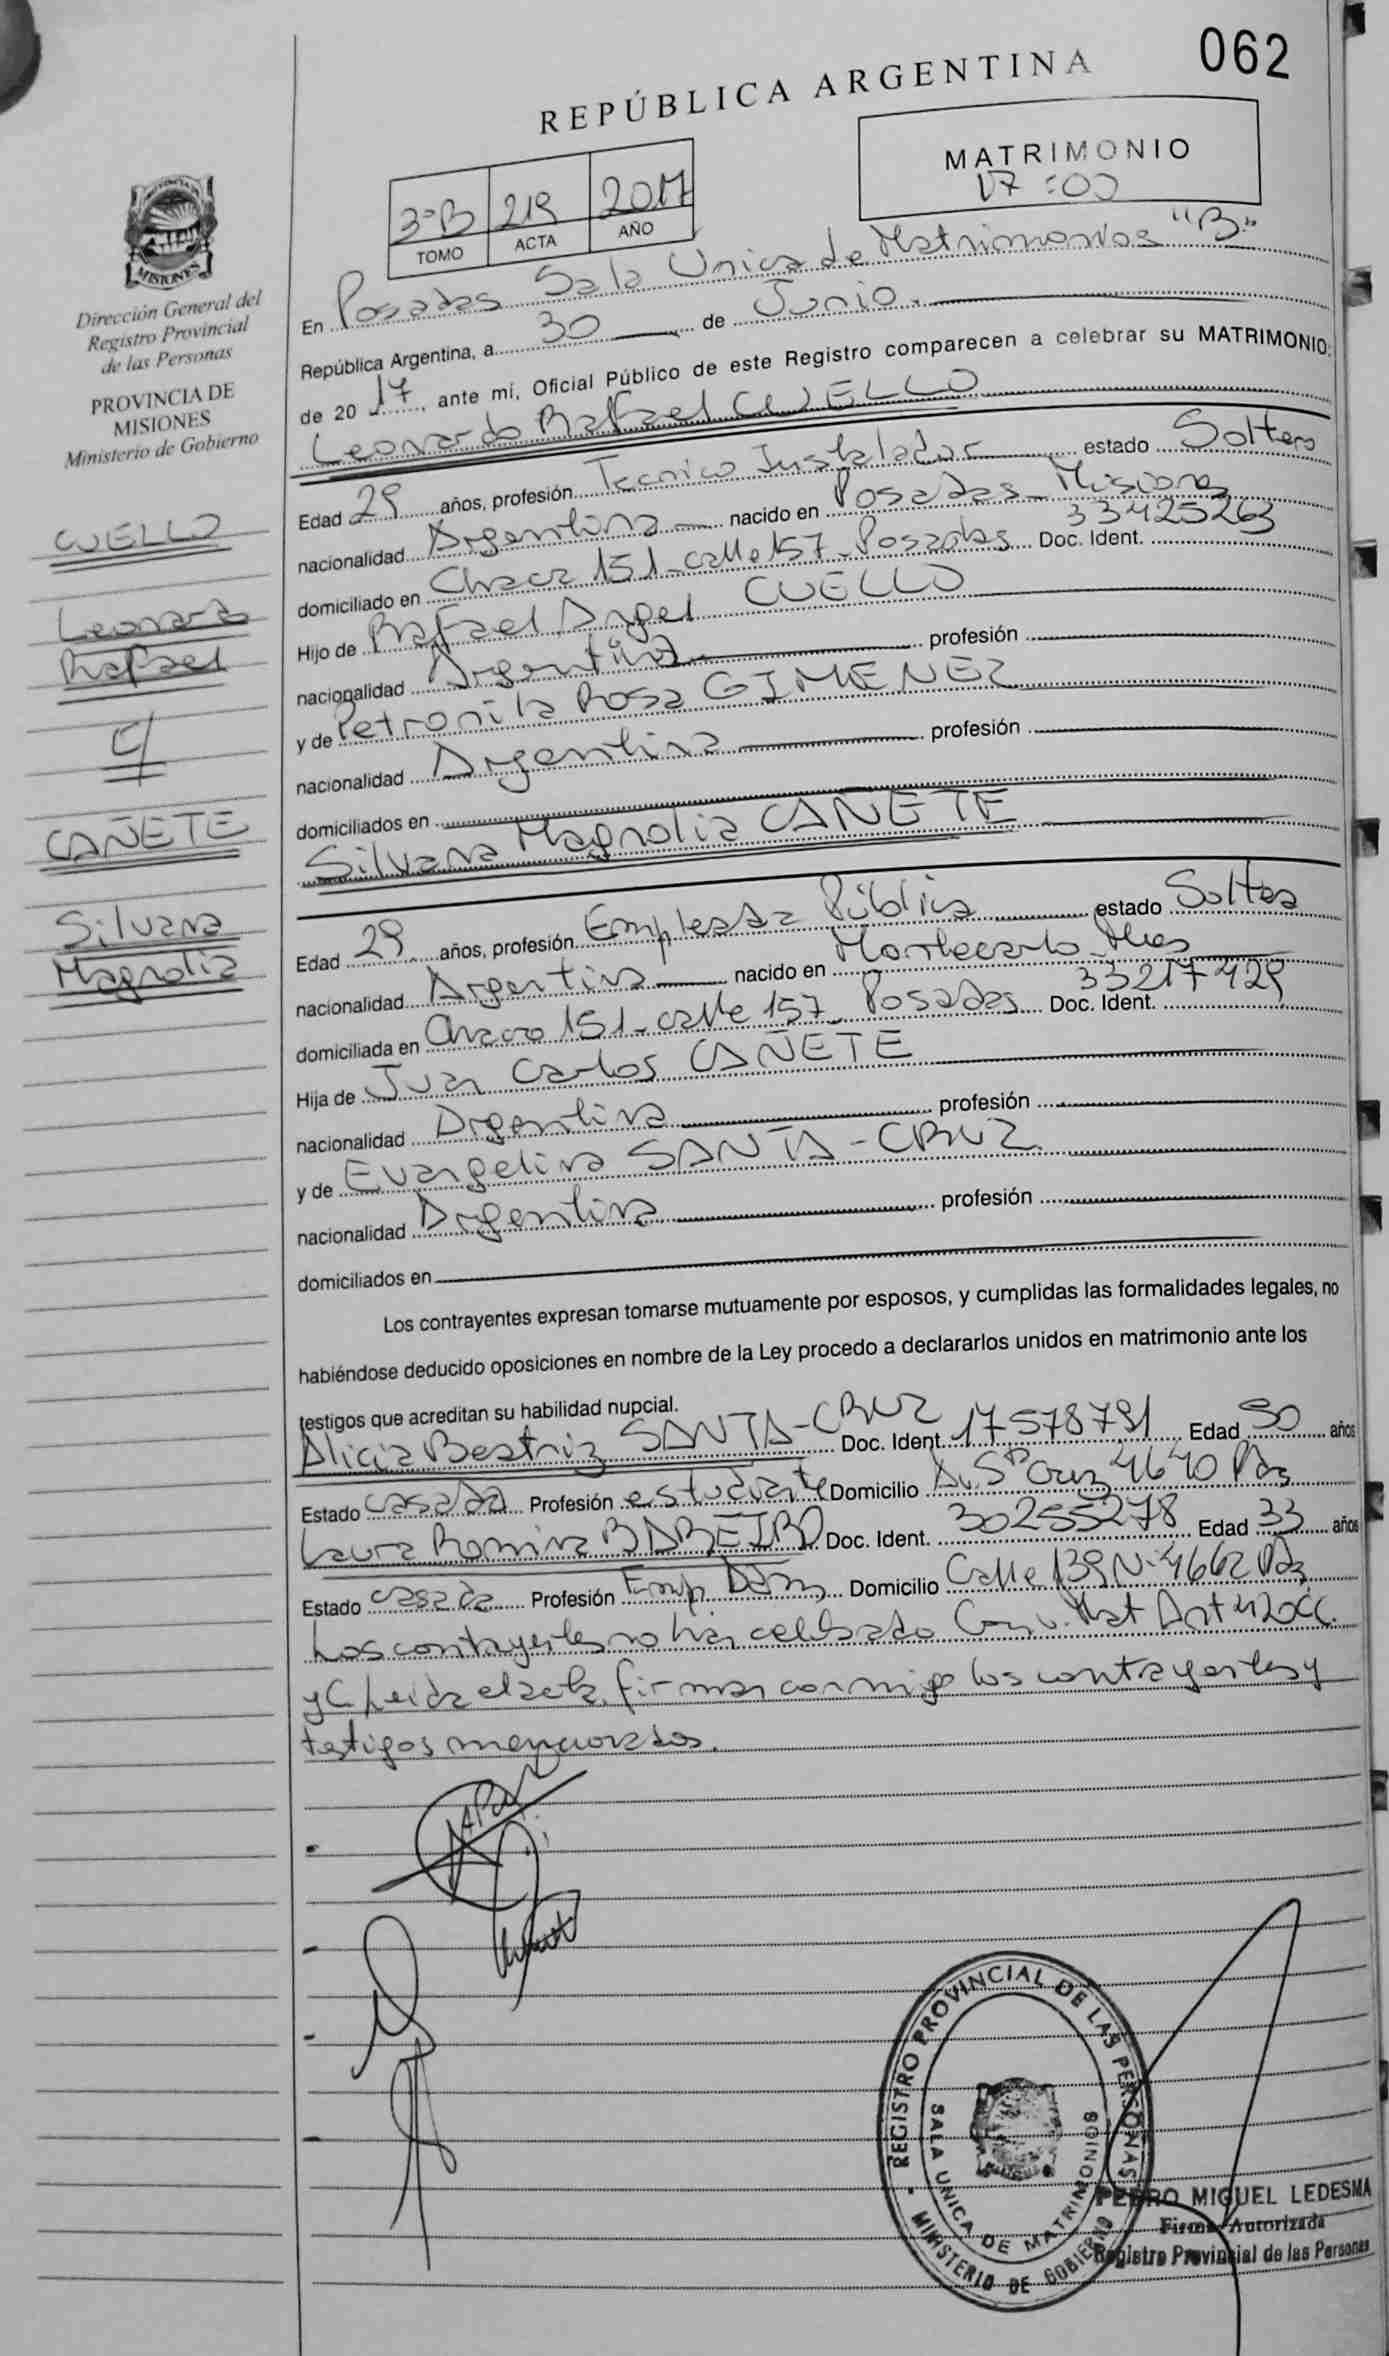 062
REPÚBLICA ARGENTINA
MATRIMONIO
17:00
3ºB 219 2017
TOMO ACTA AÑO
MISIONES
Dirección General del
Registro Provincial
de las Personas
PROVINCIA DE
MISIONES
Ministerio de Gobierno
CUELLO
Leonardo
Rafael
C/
CAÑETE
Silvana
Magnolia
En Posadas Sala Unica de Matrimonios "B"
República Argentina, a 30 de Junio.
de 2017, ante mí, Oficial Público de este Registro comparecen a celebrar su MATRIMONIO:
Leonardo Rafael CUELLO
Edad 29 años, profesión Tecnico Instalador estado Soltero
nacionalidad Argentina nacido en Posadas Misiones
domiciliado en Chaca 151 - calle 157 - Posadas Doc. Ident. 33425263
Hijo de Rafael Angel CUELLO
nacionalidad Argentina profesión
y de Petronila Rosa GIMENEZ
nacionalidad Argentina profesión
domiciliados en
Silvana Magnolia CAÑETE
Edad 29 años, profesión Empleada Pública estado Soltera
nacionalidad Argentina nacido en Montecarlo Mnes
domiciliada en 151 - calle 157 - Posadas Doc. Ident. 33217429
Hija de Juan Carlos CAÑETE
nacionalidad Argentina profesión
y de Evangelina SANTA-CRUZ
nacionalidad Argentina profesión
domiciliados en
Los contrayentes expresan tomarse mutuamente por esposos, y cumplidas las formalidades legales, no
habiéndose deducido oposiciones en nombre de la Ley procedo a declararlos unidos en matrimonio ante los
testigos que acreditan su habilidad nupcial.
Alicia Beatriz SANTA-CRUZ Doc. Ident. 17578791 Edad 50 años
Estado casada Profesión estudiante Domicilio Av. Sta Cruz 4640 Pdas
Laura Romina BABEIRO Doc. Ident. 30255278 Edad 33 años
Estado casada Profesión Emp. Dom Domicilio Calle 139 Nº 4662 Pdas
Los contrayentes no han celebrado Conv. Mat Art 420CC.
yC Leida el acta, firman conmigo los contrayentes y
testigos mencionados.
REGISTRO PROVINCIAL DE LAS PERSONAS
SALA UNICA DE MATRIMONIOS
MINISTERIO DE GOBIERNO
PEDRO MIGUEL LEDESMA
Firma Autorizada
Registro Provincial de las Personas